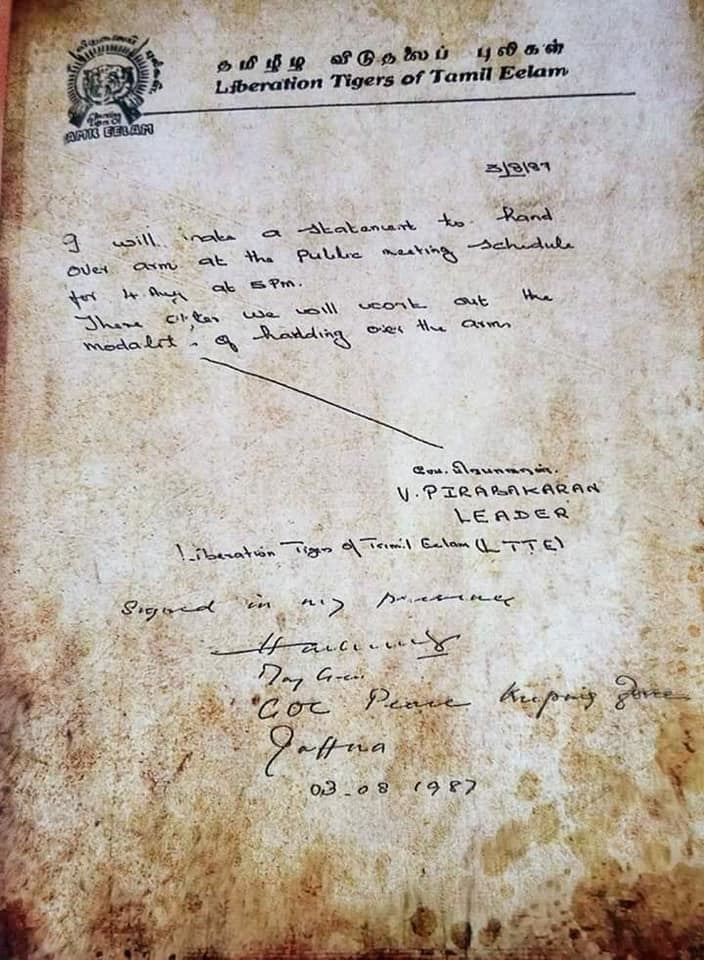 தமிழீழ விடுதலைப் புலிகள்
Liberation Tigers of Tamil Eelam
3/8/87
I will make a statement to hand
over arm at the public meeting schedule
for 4 Aug at 5 PM.
There after we will work out the
modalit of handding over the arm
வே. பிரபாகரன்.
V. PIRABAKARAN
LEADER
Liberation Tigers of Tamil Eelam (LTTE)
Signed in my presence
Maj Gen
GOC Peace Keeping Force
Jaffna
03-08 1987